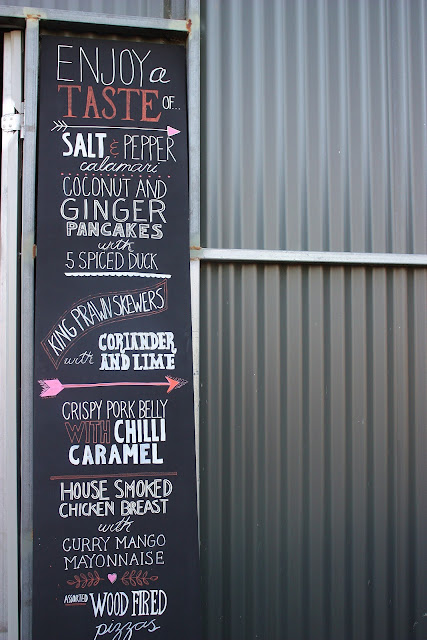 ENJOY a
TASTE OF...
SALT & PEPPER
calamari
COCONUT AND
GINGER
PANCAKES
with
5 SPICED DUCK
KING PRAWN SKEWERS
with CORIANDER
AND LIME
CRISPY PORK BELLY
WITH CHILLI
CARAMEL
HOUSE SMOKED
CHICKEN BREAST
with
CURRY MANGO
MAYONNAISE
ASSORTED WOOD FIRED
pizzas